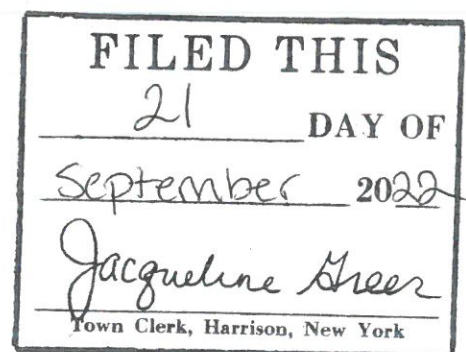 FILED THIS
21 DAY OF
September 2022
Jacqueline Greer
Town Clerk, Harrison, New York